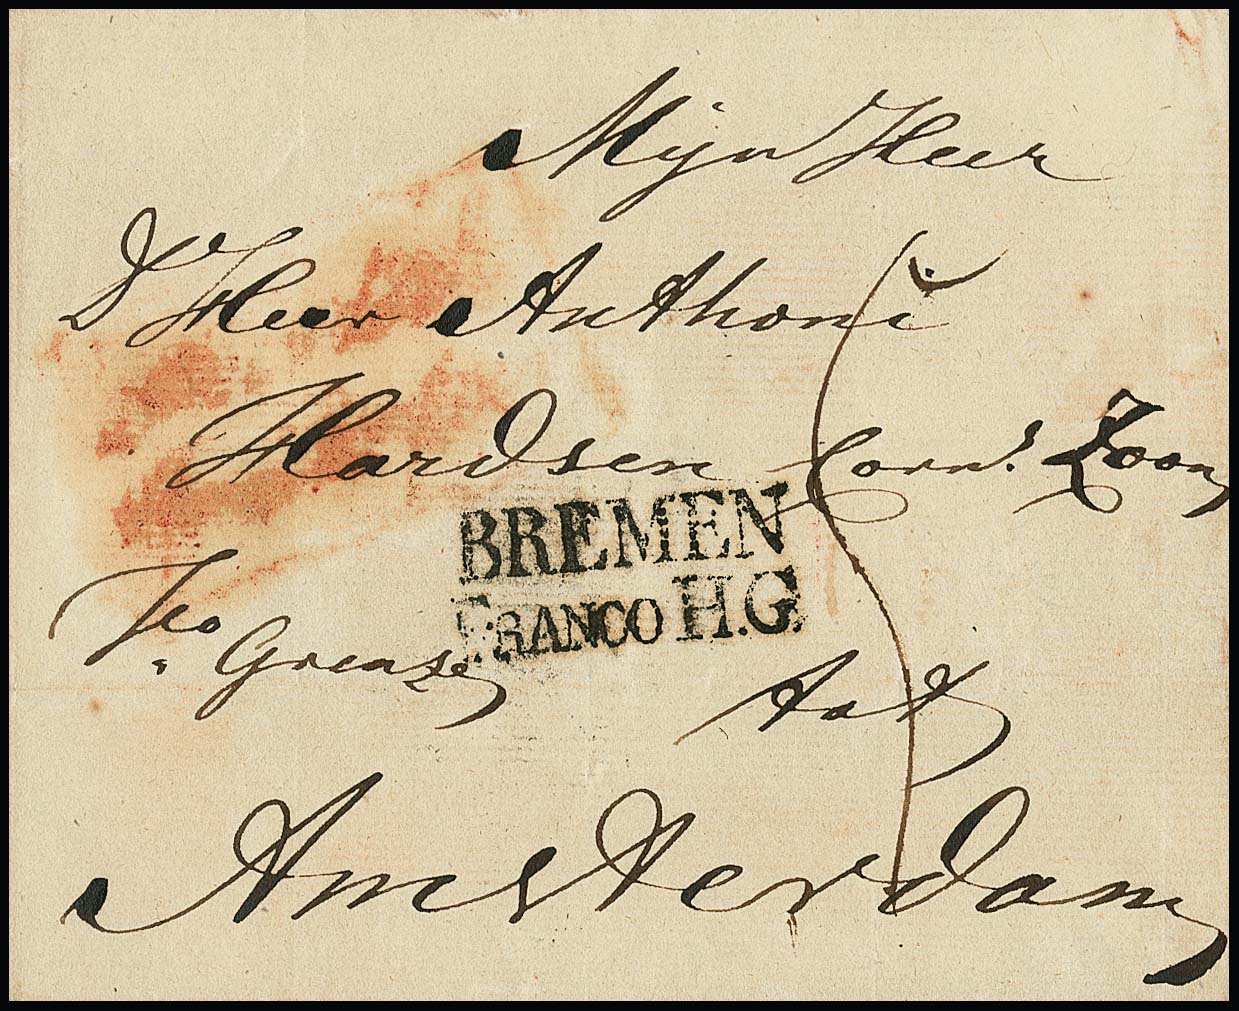 Mijn Heer
D Heer Anthoni
Hardsen Corns. Zoon
BREMEN
FRANCO H.G.
fco Grense
Tot
Amsterdam